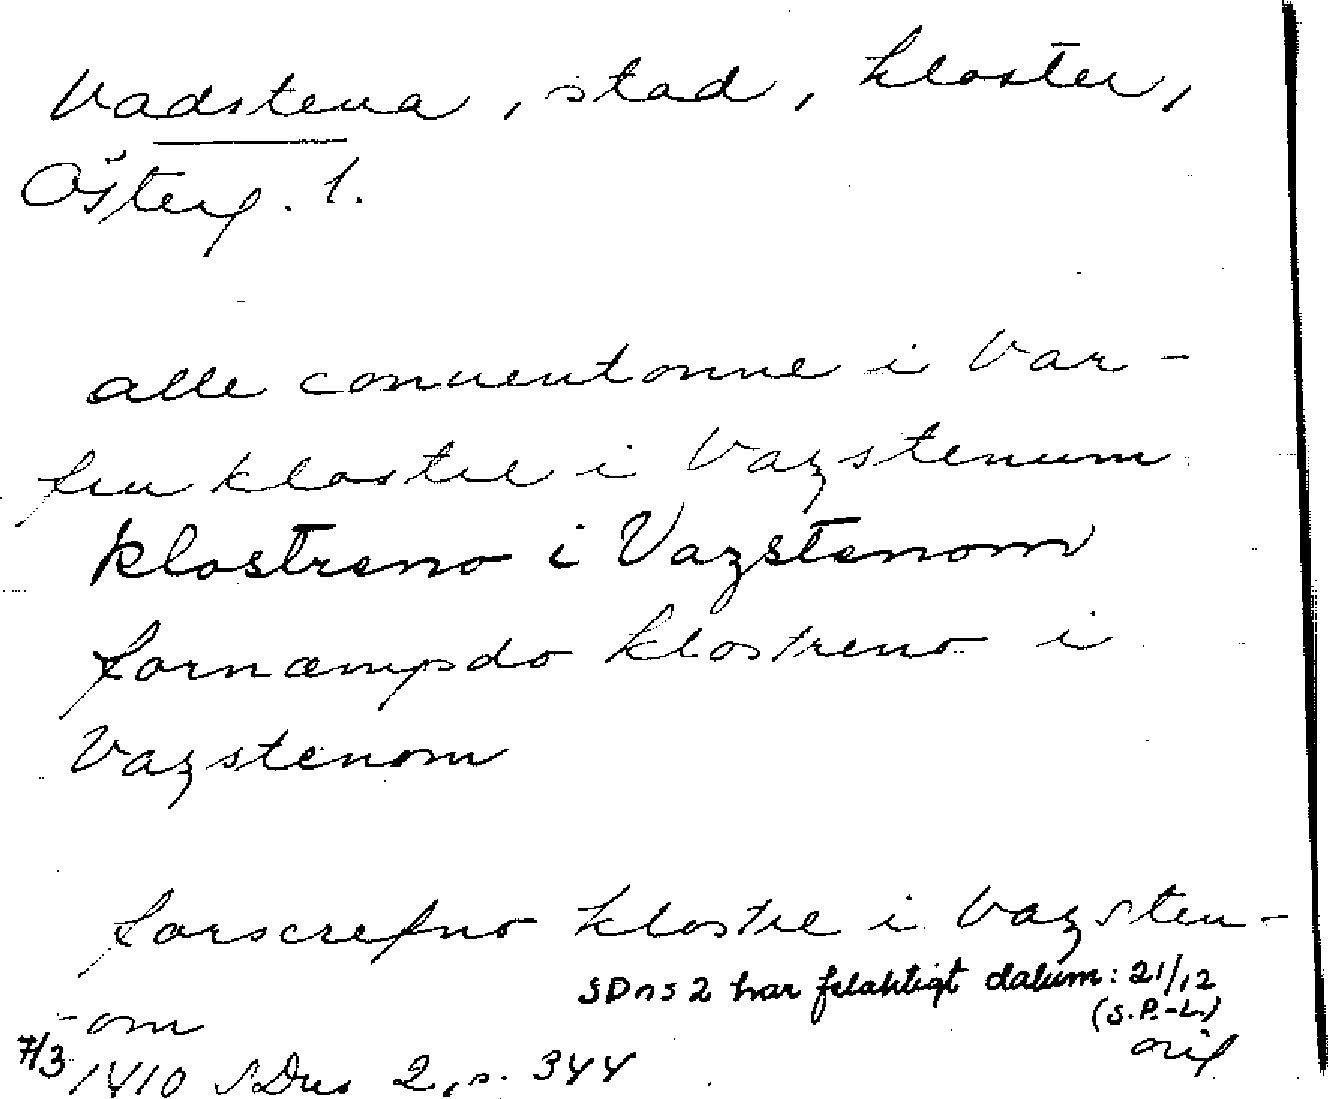 Vadstena, stad, kloster,
Österg. l.
alle conuentonne i Var-
fru klostre i Vazstenum
klostreno i Vazstenom
fornæmpdo klostreno i
Vazstenom
forscrefno klostre i Vazsten-
SDns 2 har felaktigt datum: 21/12
(S.P.-L.)
-om
orig
7/3 1410 SDns 2, s. 344